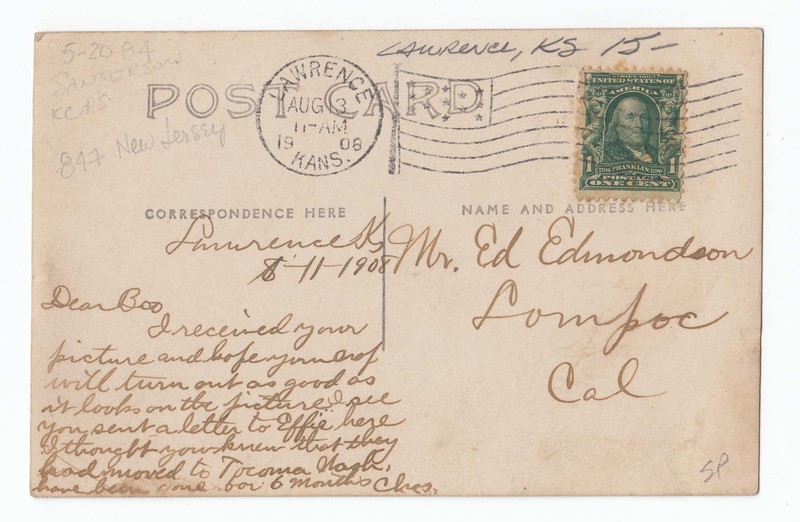 5-20-84
SANDERSON
KCPS
847 New Jersey
LAWRENCE, KS 15-
POST CARD
LAWRENCE
AUG 13
11-AM
1908
KANS.
SERIES 1902
UNITED STATES OF
AMERICA
1706 FRANKLIN 1790
POSTAGE
1 ONE CENT 1
CORRESPONDENCE HERE
NAME AND ADDRESS HERE
Lawrence Ks
8-11-1908
Dear Bro
I received your
picture and hope your crop
will turn out as good as
it looks on the picture. I see
you sent a letter to Effie here
I thought you knew that they
had moved to Tocoma Wash.
have been gone for 6 months Chas.
Mr. Ed Edmondson
Lompoc
Cal
SP